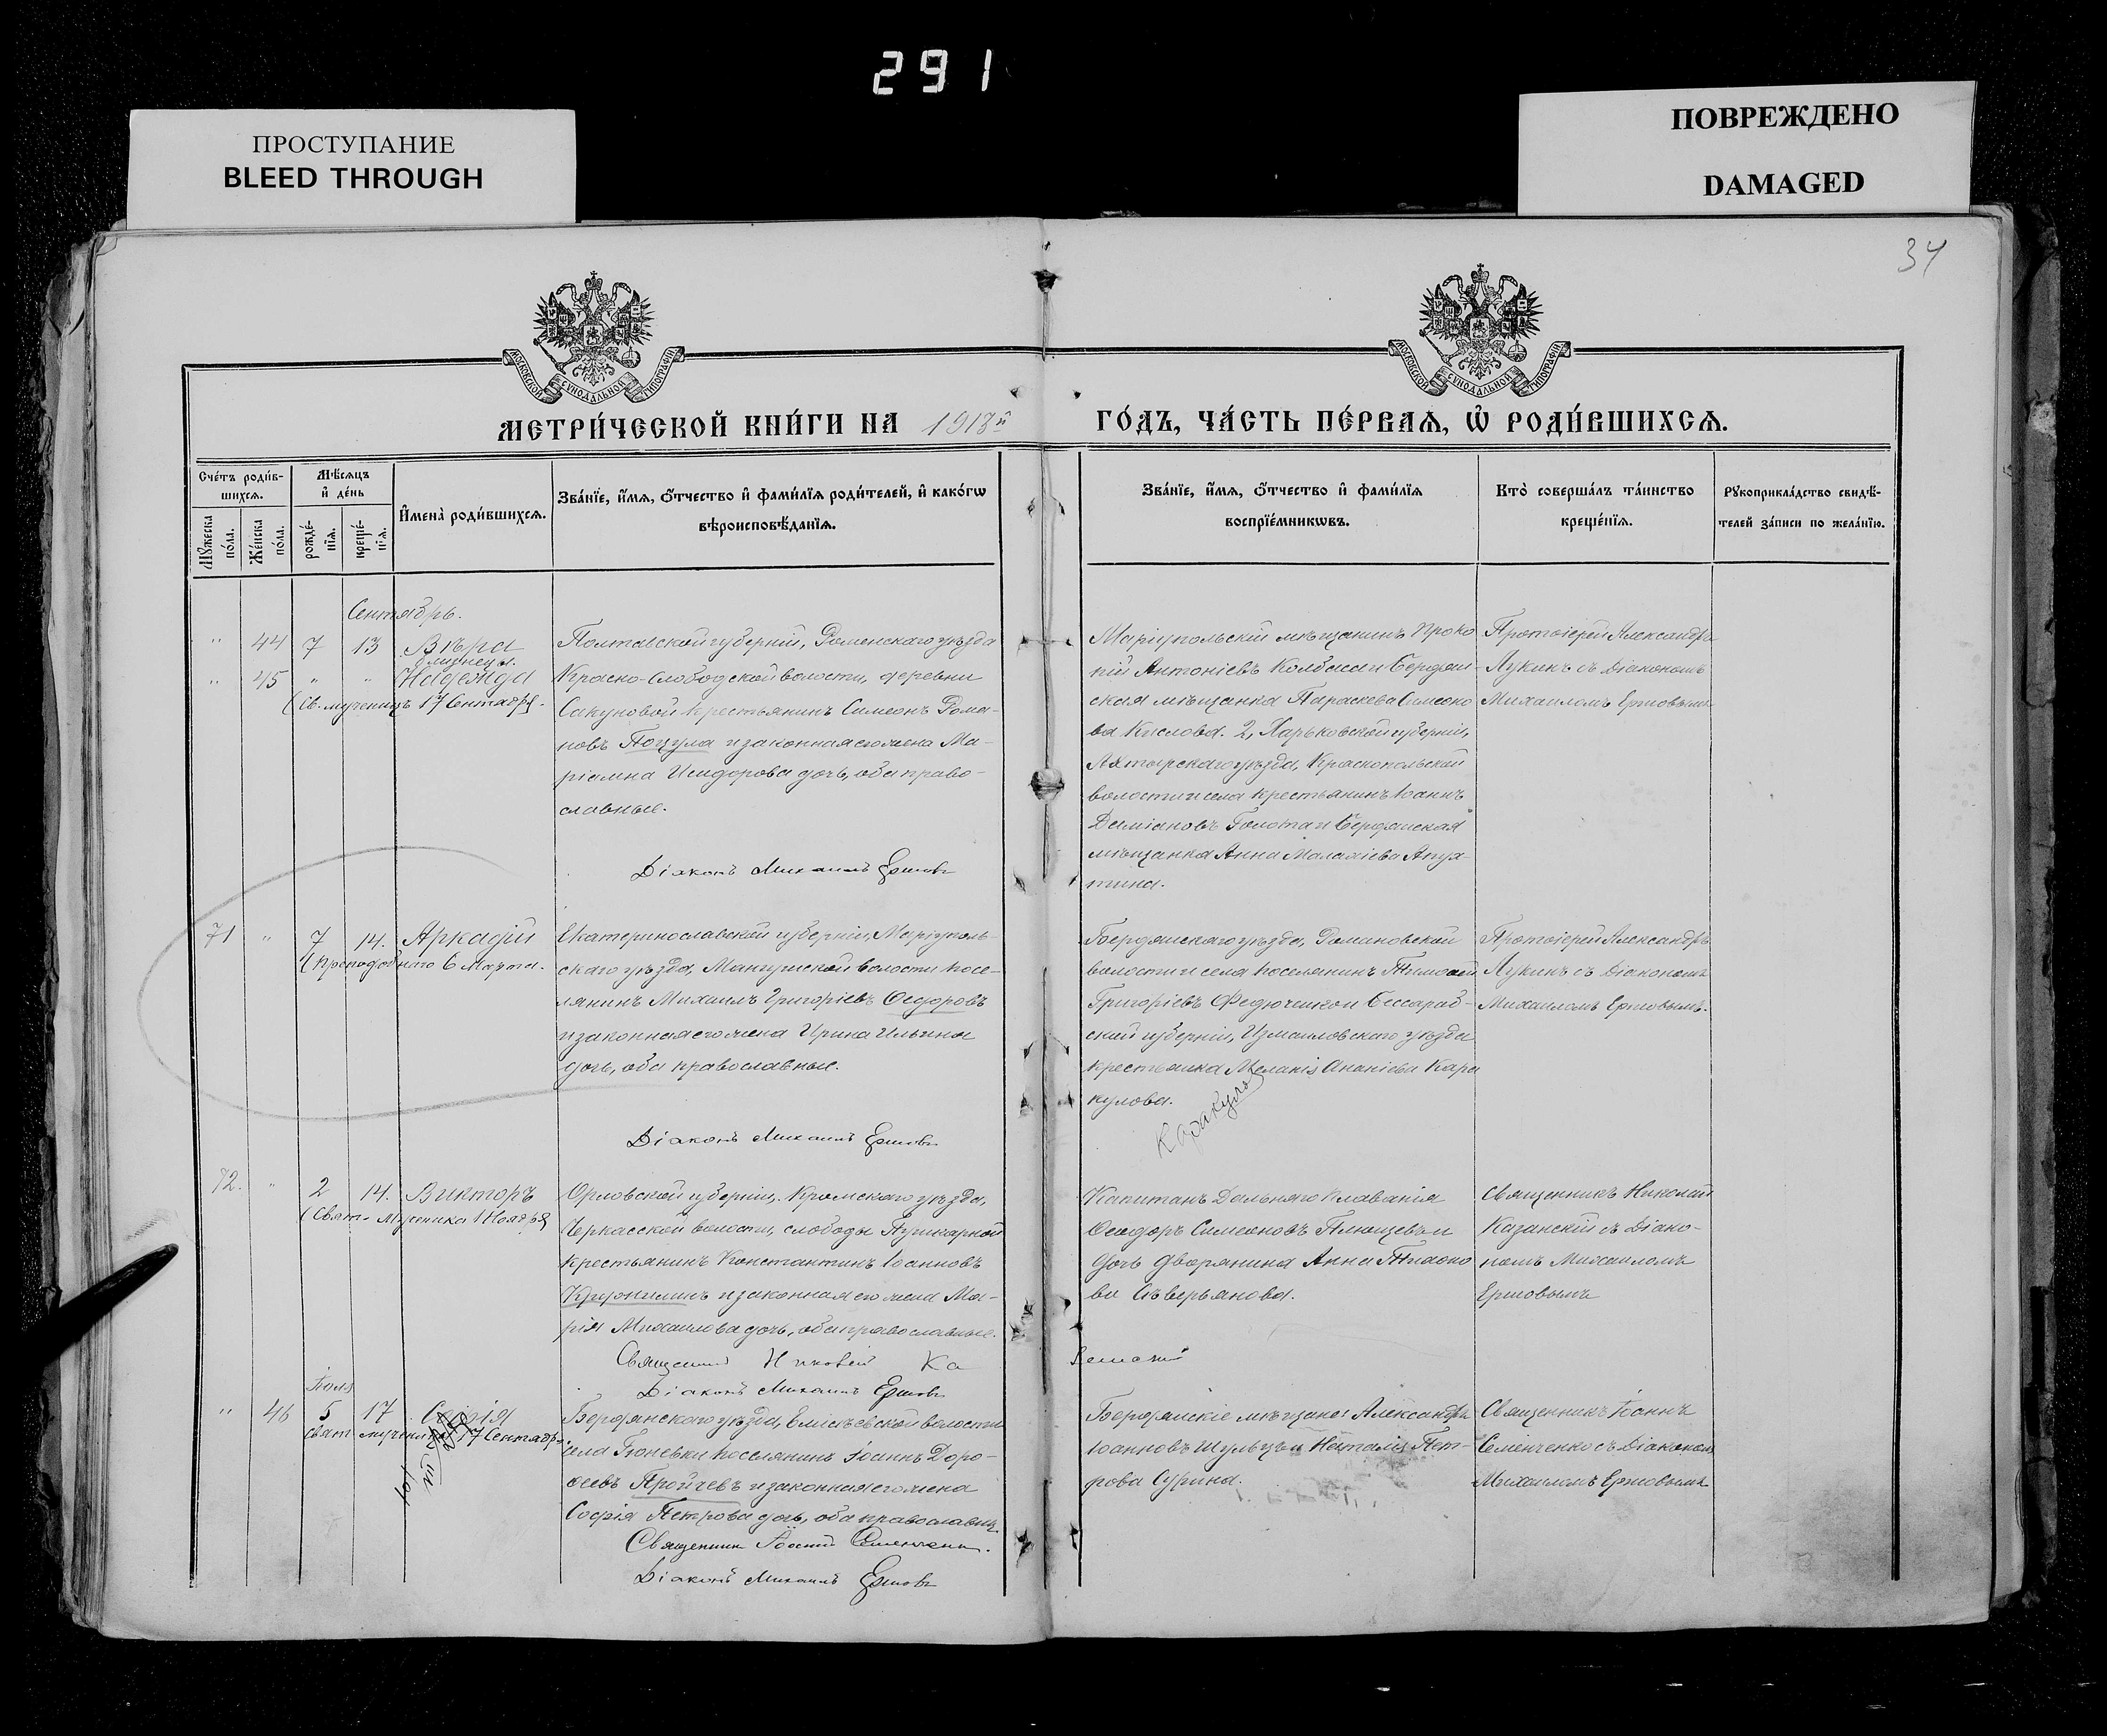 291
ПРОСТУПАНИЕ
BLEED THROUGH
ПОВРЕЖДЕНО
DAMAGED
34
МОСКОВСКОЙ СУНОДАЛЬНОЙ ТИПОГРАФІИ
МОСКОВСКОЙ СУНОДАЛЬНОЙ ТИПОГРАФІИ
МЕТРИ́ЧЕСКОЙ КНИ́ГИ НА 1913й ГО́ДЪ, ЧА́СТЬ ПЕ́РВАѦ, Ѡ҆ РОДИ́ВШИХСѦ.
Сче́тъ роди́в-
шихсѧ.
Мѣ́сѧцъ
и҆ де́нь
И҆мена̀ роди́вшихсѧ.
Зва́нїе, и҆́мѧ, ѻ҆́тчество и҆ фами́лїѧ роди́телей, и҆ како́гѡ
вѣроисповѣ́данїѧ.
Зва́нїе, и҆́мѧ, ѻ҆́тчество и҆ фами́лїѧ
воспрїе́мникѡвъ.
Кто̀ соверша́лъ та́инство
креще́нїѧ.
Рꙋкоприкла́дство свидѣ́-
телей за́писи по жела́нїю.
Мꙋ́жеска
по́ла.
Же́нска
по́ла.
рожде́-
нїѧ.
креще́-
нїѧ.
Сентябрь.
" 44 7 13 Вѣра
близнецы.
" 45 " " Надежда
(Св. мученицъ 17 Сентября.
Полтавской губерніи, Роменскаго уѣзда
Красно-Слободской волости, деревни
Сакуновой крестьянинъ Симеонъ Рома-
новъ Поцула и законная его жена Ма-
ріамна Исидорова дочь, оба право-
славные.
Діаконъ Михаилъ Ершовъ
Маріупольскій мѣщанинъ Проко
пій Антоніевъ Колбаса и Бердян-
ская мѣщанка Параскева Симеоно
ва Кислова. 2, Харьковской губерніи,
Ахтырскаго уѣзда, Краснопольской
волости и села крестьянинъ Іоаннъ
Даміановъ Голота и Бердянская
мѣщанка Анна Малахіева Апух-
тина.
Протоіерей Александръ
Лукинъ съ Діакономъ
Михаиломъ Ершовымъ
71 " 7 14. Аркадій
(Преподобнаго 6 Марта.
Екатеринославской губерніи, Маріуполь-
скаго уѣзда, Мангушской волости посе-
лянинъ Михаилъ Григоріевъ Ѳедоровъ
и законная его жена Ирина Ильина
дочь, оба православные.
Діаконъ Михаилъ Ершовъ
Бердянскаго уѣзда, Романовской
волости и села поселянинъ Тимоѳей
Григоріевъ Федюченко и Бессараб-
ской губерніи, Измаиловскаго уѣзда
крестьянка Меланія Ананіева Кара
кулова.
Протоіерей Александръ
Лукинъ съ Діакономъ
Михаиломъ Ершовымъ.
72. " 2 14. Викторъ
(Свят. Мученика 11 Ноября
Орловской губерніи, Кромскаго уѣзда,
Черкасской волости, слободы Пушкарной
крестьянинъ Константинъ Іоанновъ
и законная его жена Ма-
рія Михаилова дочь, оба православные.
Священникъ Николай Казанскій
Діаконъ Михаилъ Ершовъ
Капитанъ Дальняго плаванія
Ѳеодоръ Симеоновъ Плющевъ и
дочь дворянина Анна
ва Сѣверьянова.
Священникъ Николай
Казанскій съ Діако-
номъ Михаиломъ
Ершовымъ
" 46 5 17 Софія
Свят. мученицы 17 Сентябр.
Бердянскаго уѣзда, волости
села Гюневки поселянинъ Іоаннъ Доро-
ѳеевъ Пройчевъ и законная его жена
Софія Петрова дочь, оба православн.
Священникъ Іоаннъ Семенченко.
Діаконъ Михаилъ Ершовъ
Бердянскіе мѣщане: Александръ
Іоанновъ Шульцъ и Наталія Пет-
рова Сурина.
Священникъ Іоаннъ
Семенченко съ Діакономъ
Михаиломъ Ершовымъ